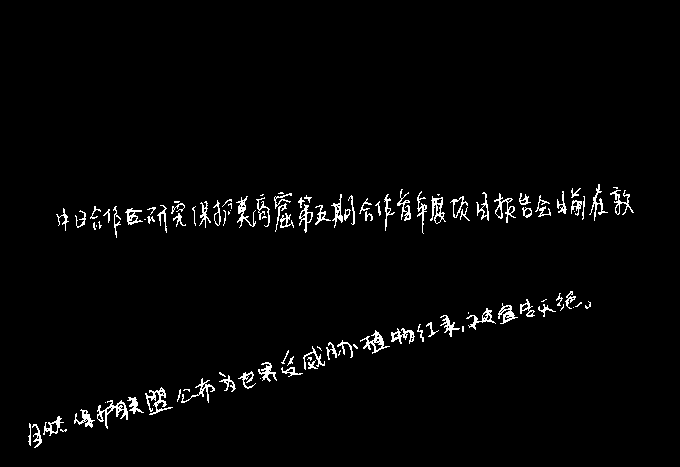 中日合作研究保护莫高窟第五期合作首年度项目报告会日前在敦
自然保护联盟公布为世界受威胁植物红录,被宣告灭绝。